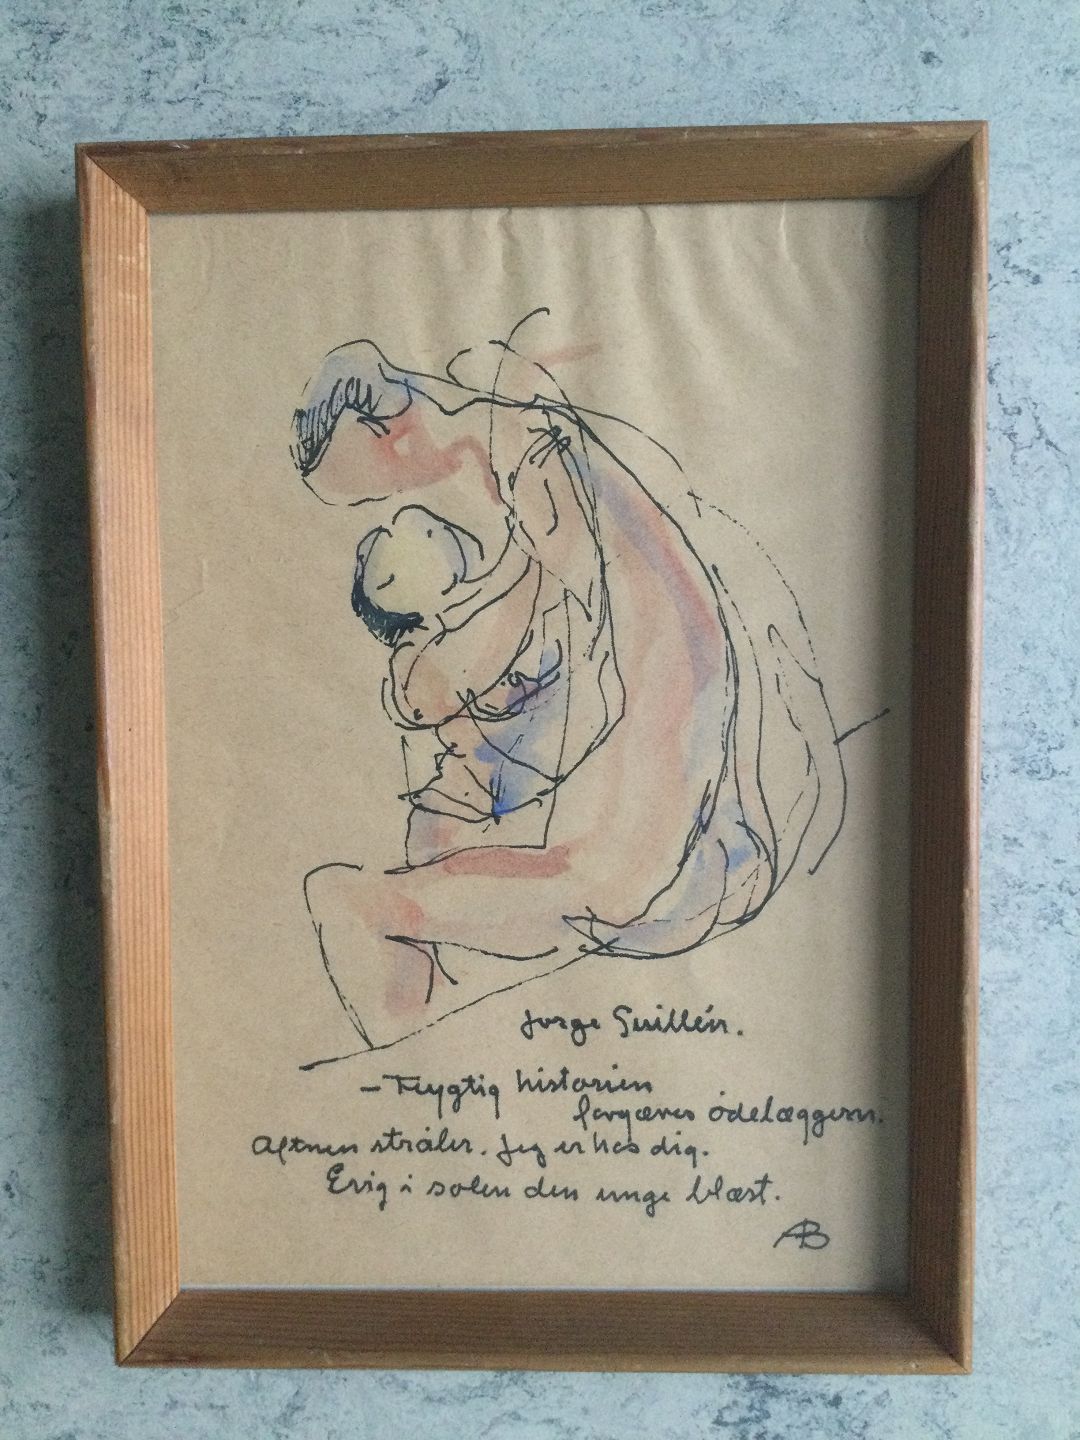 Jorge Guillén.
– Flygtig historien
forgæves ødelæggern.
Aftnen stråler. Jeg er hos dig.
Evig i solen den unge blæst.
AB